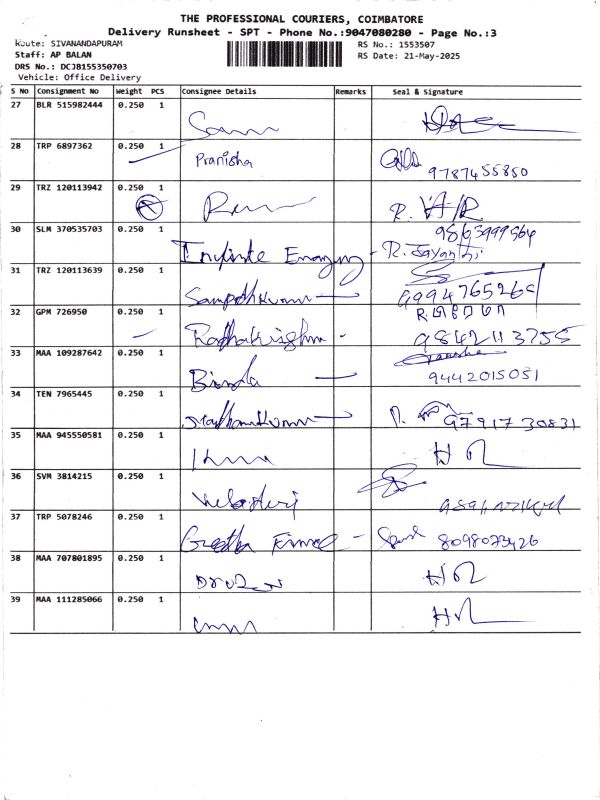 THE PROFESSIONAL COURIERS, COIMBATORE
Delivery Runsheet - SPT - Phone No.:9047080280 - Page No.:3
Route: SIVANANDAPURAM
RS No.: 1553507
Staff: AP BALAN
RS Date: 21-May-2025
DRS No.: DCJB155350703
Vehicle: Office Delivery
S No Consignment No Weight PCS Consignee Details Remarks Seal & Signature
27 BLR 515982444 0.250 1
28 TRP 6897362 0.250 1 Pranisha
9787455850
29 TRZ 120113942 0.250 1
30 SLM 370535703 0.250 1 - R. Jayanthi
31 TRZ 120113639 0.250 1 Sampathkumar
9994765269
32 GPM 726950 0.250 1 Radhakrishna -
9842113755
33 MAA 109287642 0.250 1
9442015051
34 TEN 7965445 0.250 1
9791730831
35 MAA 945550581 0.250 1
36 SVM 3814215 0.250 1
37 TRP 5078246 0.250 1 Geetha
8098073426
38 MAA 707801895 0.250 1
39 MAA 111285066 0.250 1